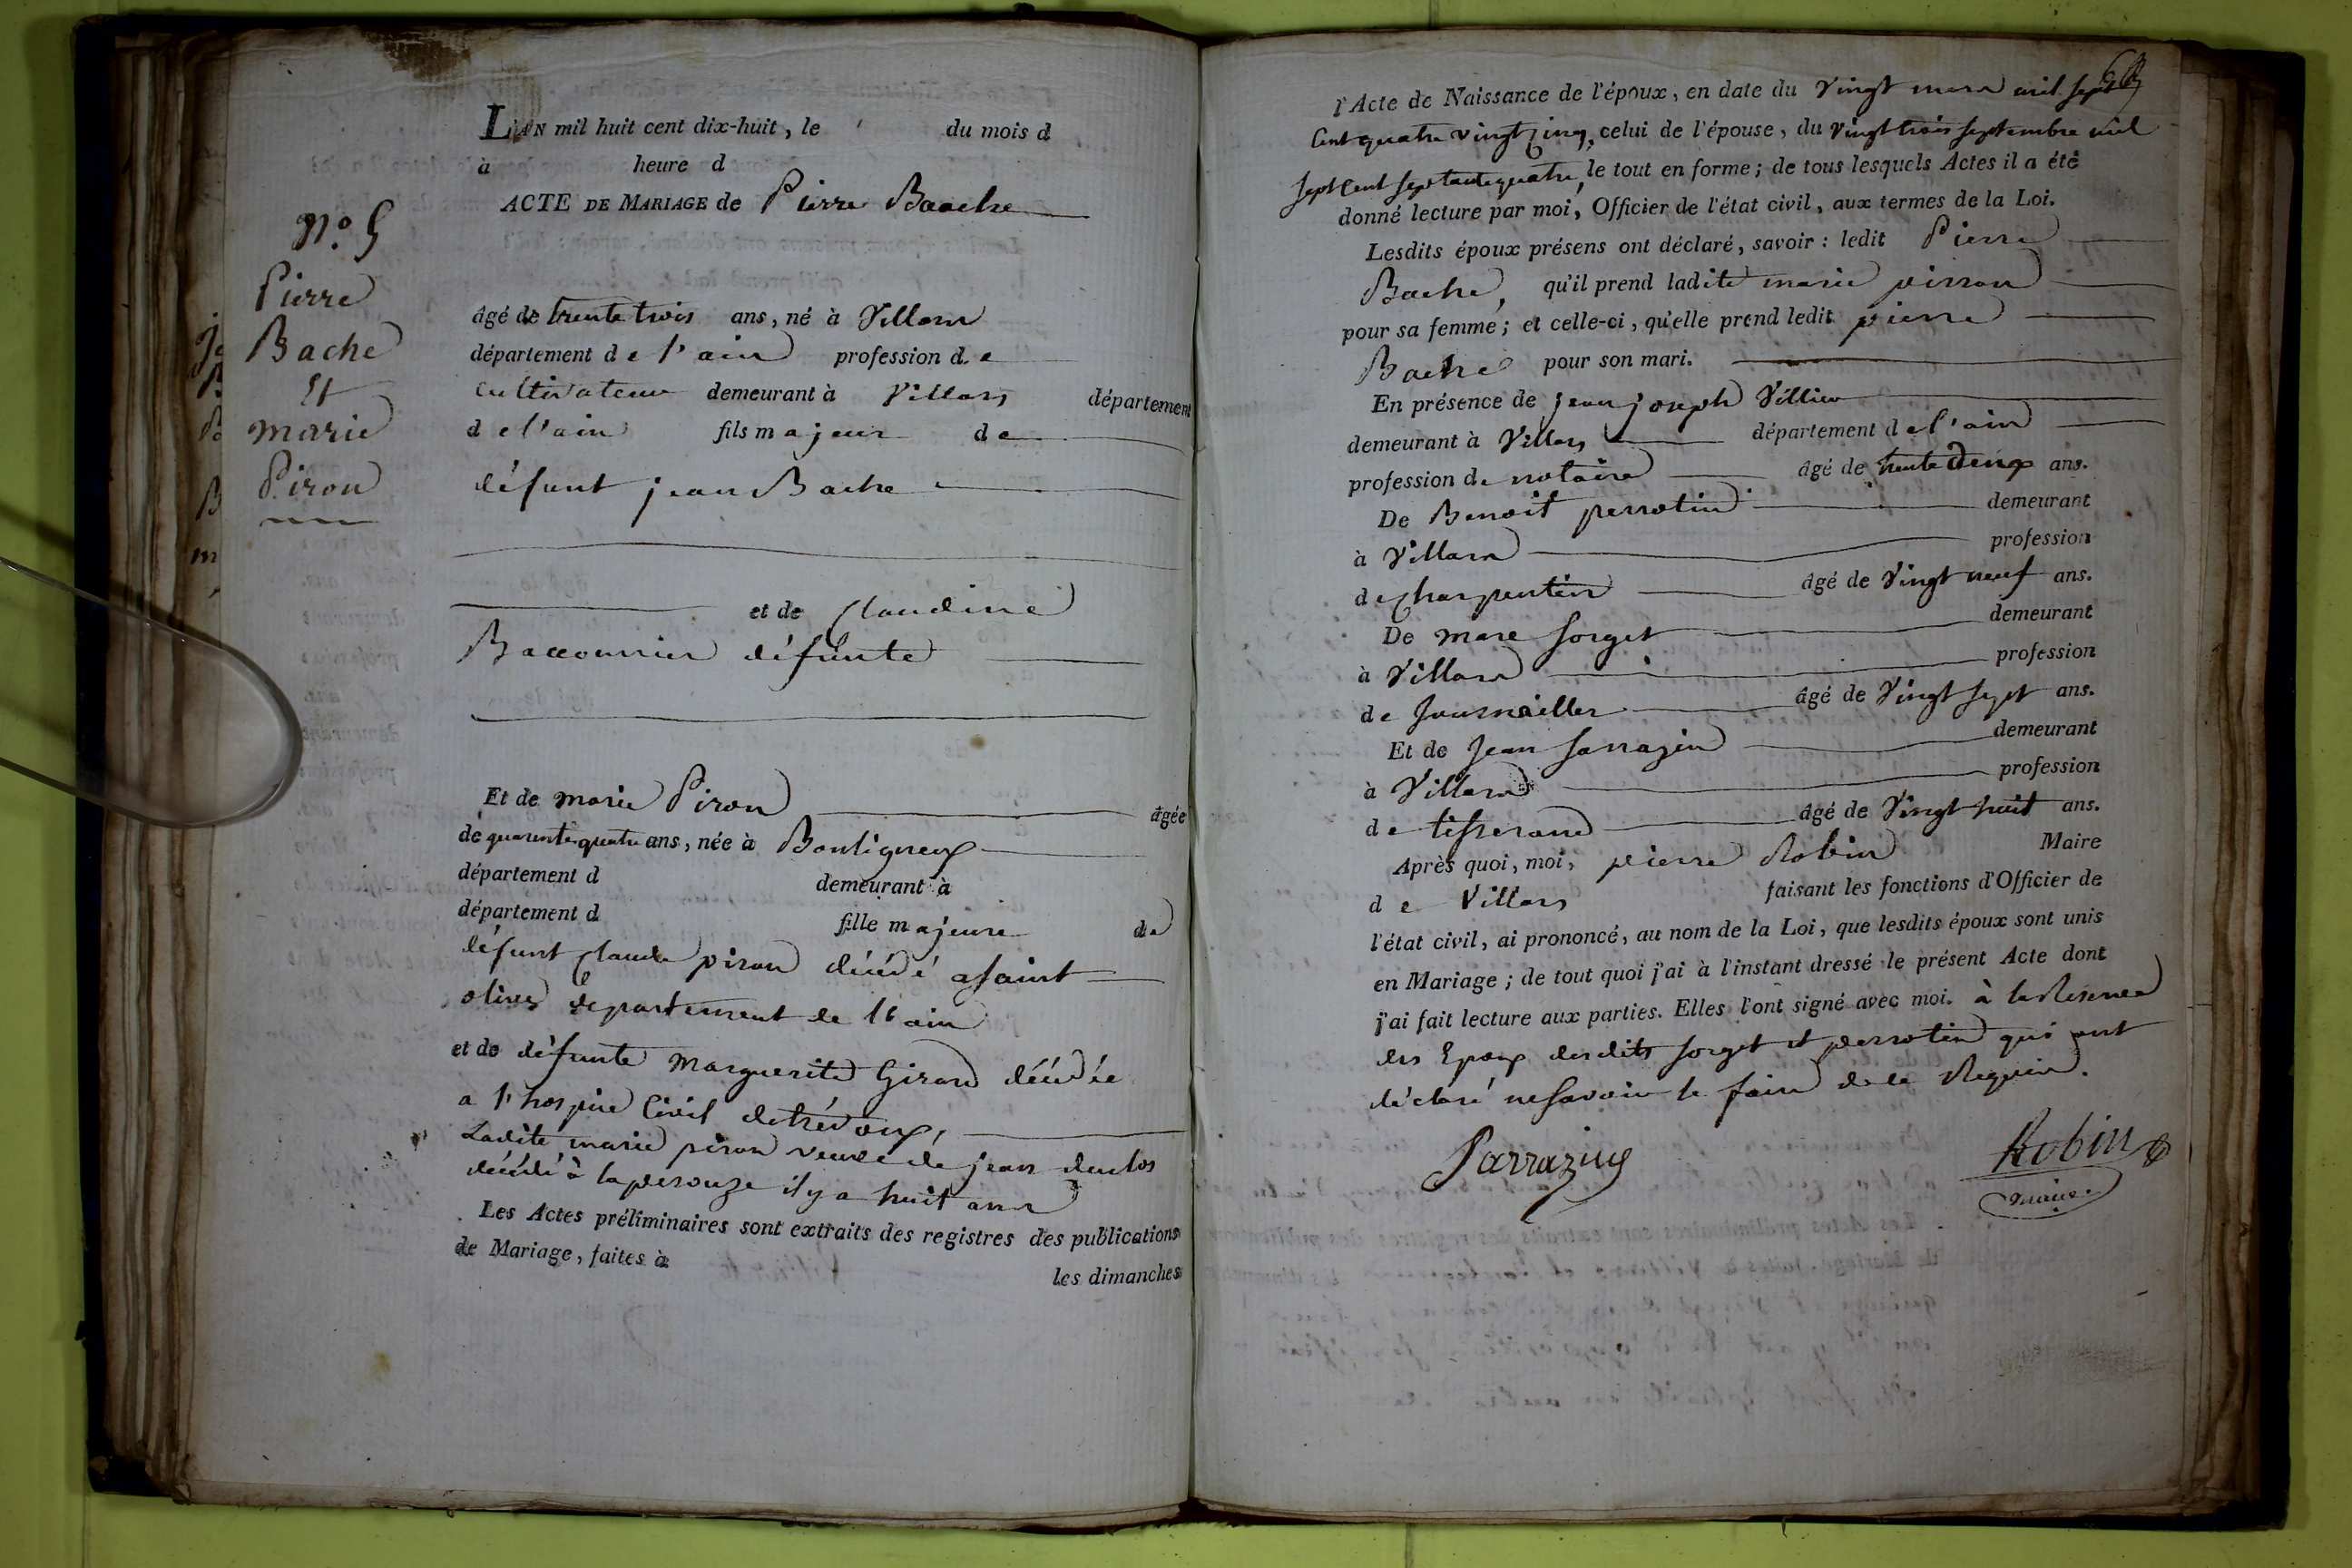 N.º 5
Pierre
Bache
Et
marie
Piron
L'AN mil huit cent dix-huit, le du mois d
à heure d
ACTE DE MARIAGE de Pierre Baache
âgé de trente trois ans, né à Villars
département de l'ain profession de
Cultivateur demeurant à Villars département
de l'ain fils majeur de
défunt jean Bache
et de Claudine
Baccounier défunte
Et de marie Piron âgée
de quarante quatre ans, née à Bouligneux
département d demeurant à
département d fille majeure de
défunt Claude piron décédé a saint
olive département de l'ain
et de défunte Marguerite Girard décédée
a l'hospice Civil de trévoux,
Ladite marie piron veuve de jean duclos
décédé à laperouze il y a huit ans
Les Actes préliminaires sont extraits des registres des publications
de Mariage, faites à les dimanches
l'Acte de Naissance de l'époux, en date du Vingt mars mil sept
Cent quatre vingt Cinq, celui de l'épouse, du vingt trois septembre mil
sept Cent septante quatre, le tout en forme; de tous lesquels Actes il a été
donné lecture par moi, Officier de l'état civil, aux termes de la Loi.
Lesdits époux présens ont déclaré, savoir : ledit Pierre
Bache, qu'il prend ladite marie pirron
pour sa femme; et celle-ci, qu'elle prend ledit pierre
Bache pour son mari.
En présence de jean joseph Villier
demeurant à Villars département de l'ain
profession de notaire âgé de trente deux ans.
De Benoit perrotin demeurant
à Villars profession
de charpentier âgé de Vingt neuf ans.
De Marc sorget demeurant
à Villars profession
de Journailler âgé de Vingt sept ans.
Et de Jean sarrazin demeurant
à Villars profession
de tisserand âgé de Vingt huit ans.
Après quoi, moi, pierre Robin Maire
de Villars faisant les fonctions d'Officier de
l'état civil, ai prononcé, au nom de la Loi, que lesdits époux sont unis
en Mariage; de tout quoi j'ai à l'instant dressé le présent Acte dont
j'ai fait lecture aux parties. Elles l'ont signé avec moi. à la Reserve
des Epoux desdits sorget et perrotin qui ont
déclaré ne savoir le faire de ce Requis.
Sarrazin
Robin
maire.